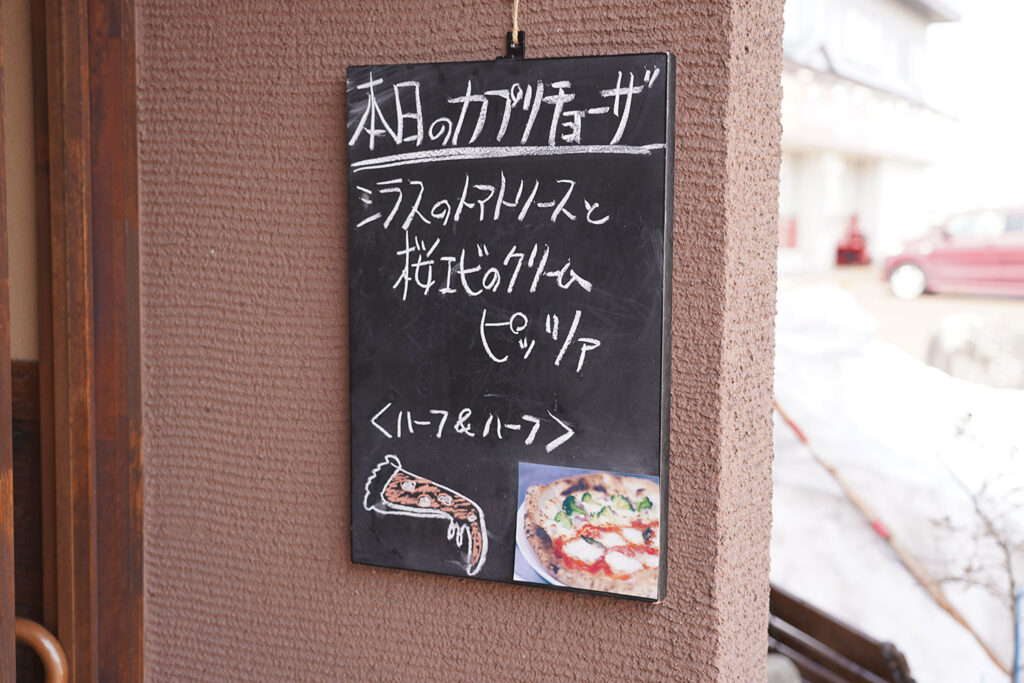 本日のカプリチョーザ
シラスのトマトソースと
桜エビのクリーム
ピッツァ
<ハーフ&ハーフ>